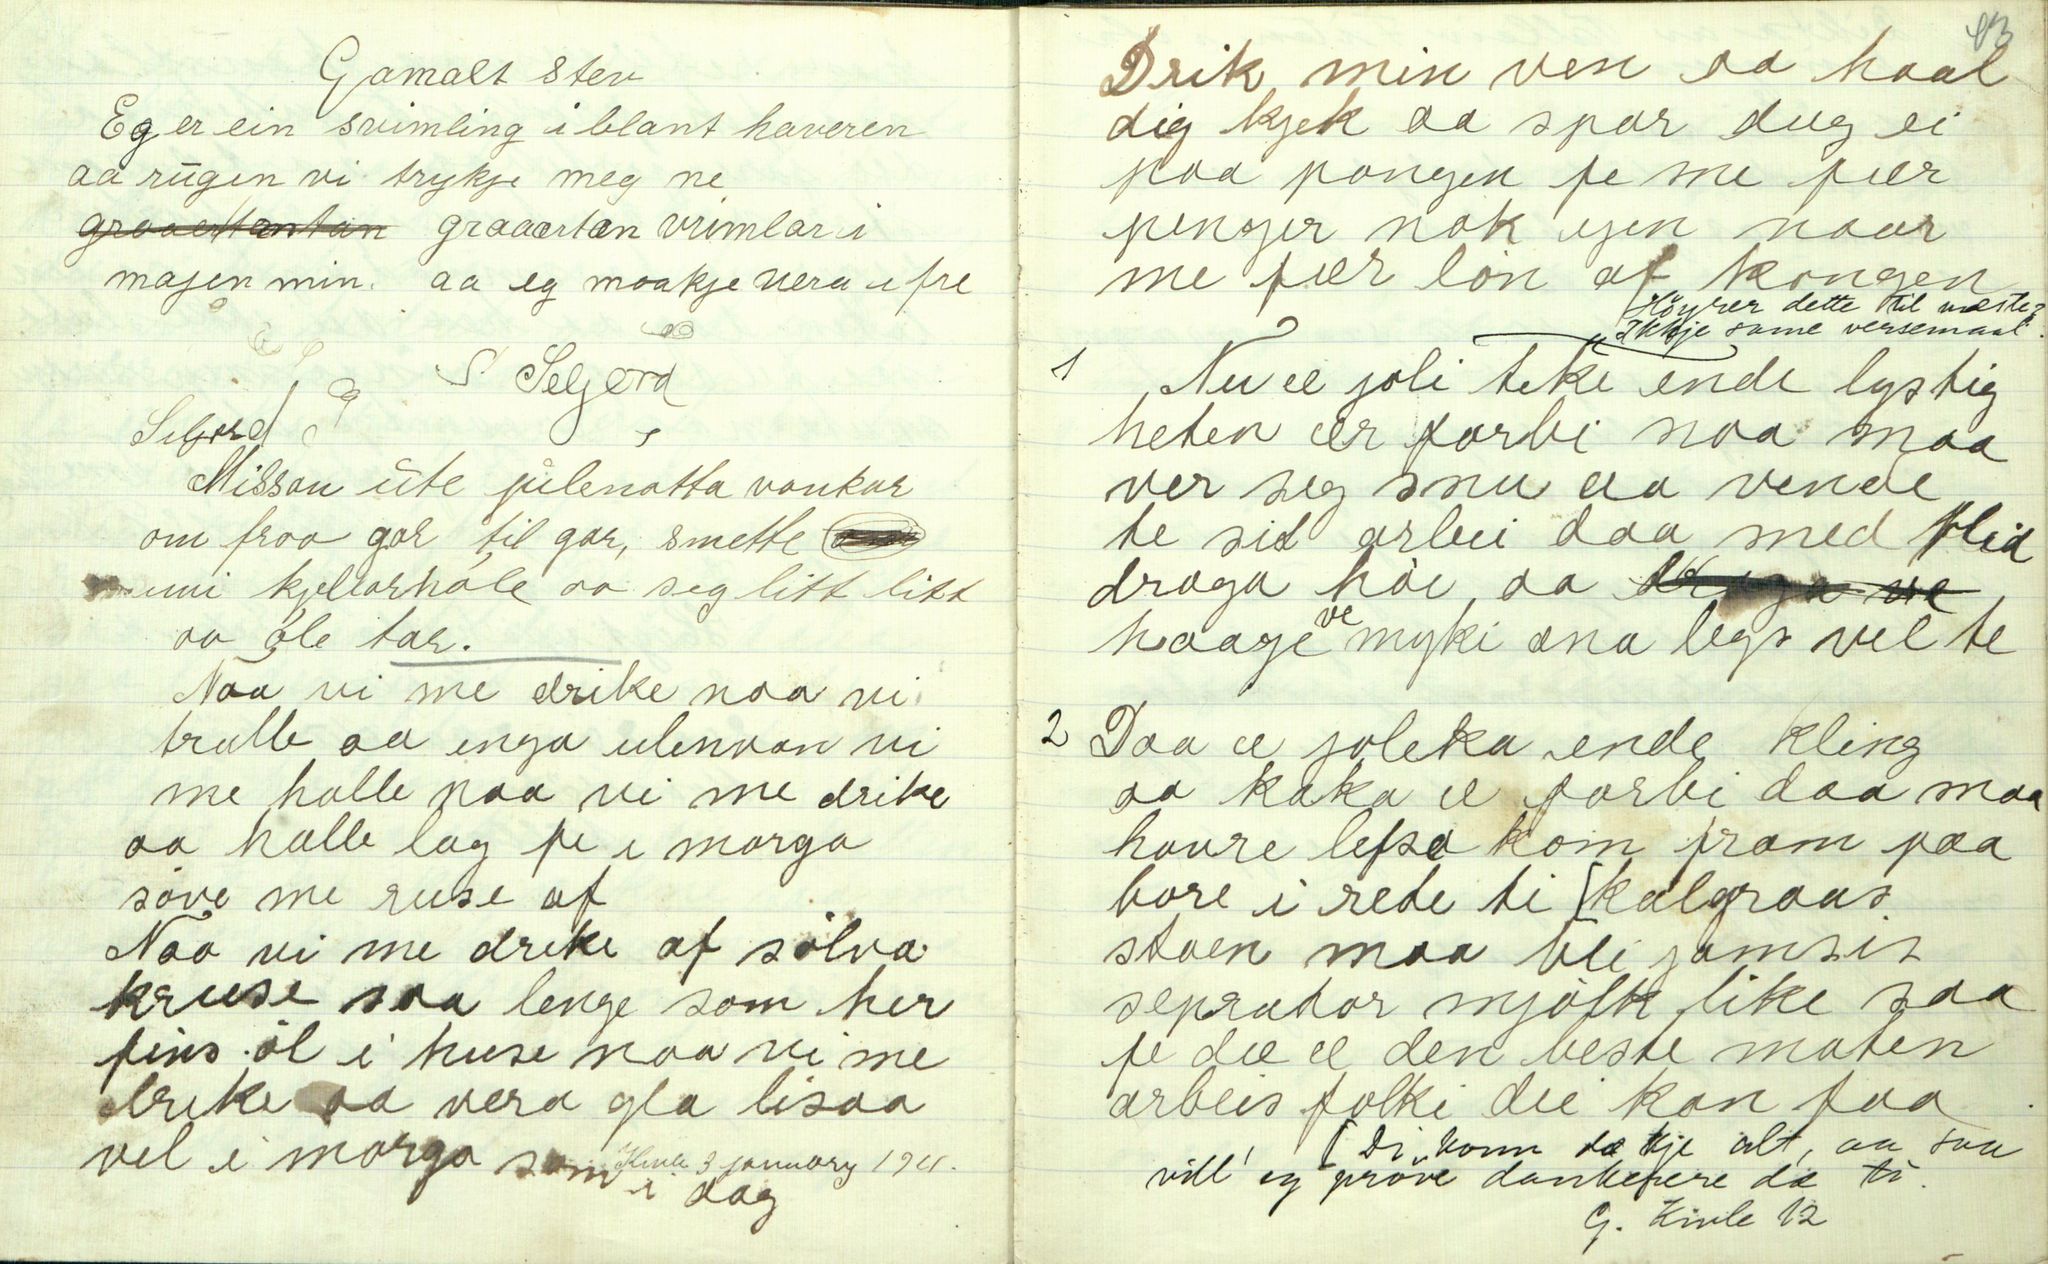 Gamalt Stev
Eg er ein svimling i blant haveren
aa rūgen vi trykje meg ne
graaertantan graaertan vrimlar i
majen min. aa eg moakje vera i fre
S Seljord
Seljord
Nissan ūte jūlenatta vankar
om fraa gar til gar, smette
uni kjellarhòle aa seg litt litt
aa òle tar.
Naa vi me drike naa vi
tralle aa inga ulenvan vi
me halle naa vi me drike
aa halle lag fe i morga
sòve me ruse af
Naa vi me drike af sòlva
kruse saa lenge som her
fins òl i huse naa vi me
drike aa vera gla lisaa
vel i morga som i dag
Kivle 3 january 1911.
43
Drik min ven aa haal
dig kjek aa spar dug ei
paa pongen fe me fær
penger nok igen naar
me fær lòn af kongen
Höyrer dette til næste?
Ikkje same versemaal.
1 Nu æ joli teke ende lystig
heten ær forbi naa maa
ver seg snu aa vende
te sid arbei daa med flid
draga hòe aa draga ve
haage ve myki ana legs vel te
2 Daa æ joleka ende kling
aa kaka æ forbi daa maa
havre lefsa kom fram paa
bore i rede ti [kalgraas
staen maa bli jamsis
seprator mjòlk like saa
fe dæ æ den beste maten
arbeis folki dei kan faa
[Di kann dæ kje alt, aa saa
vill' eg pröve dankefere dæ ti.
G. Kivle 12